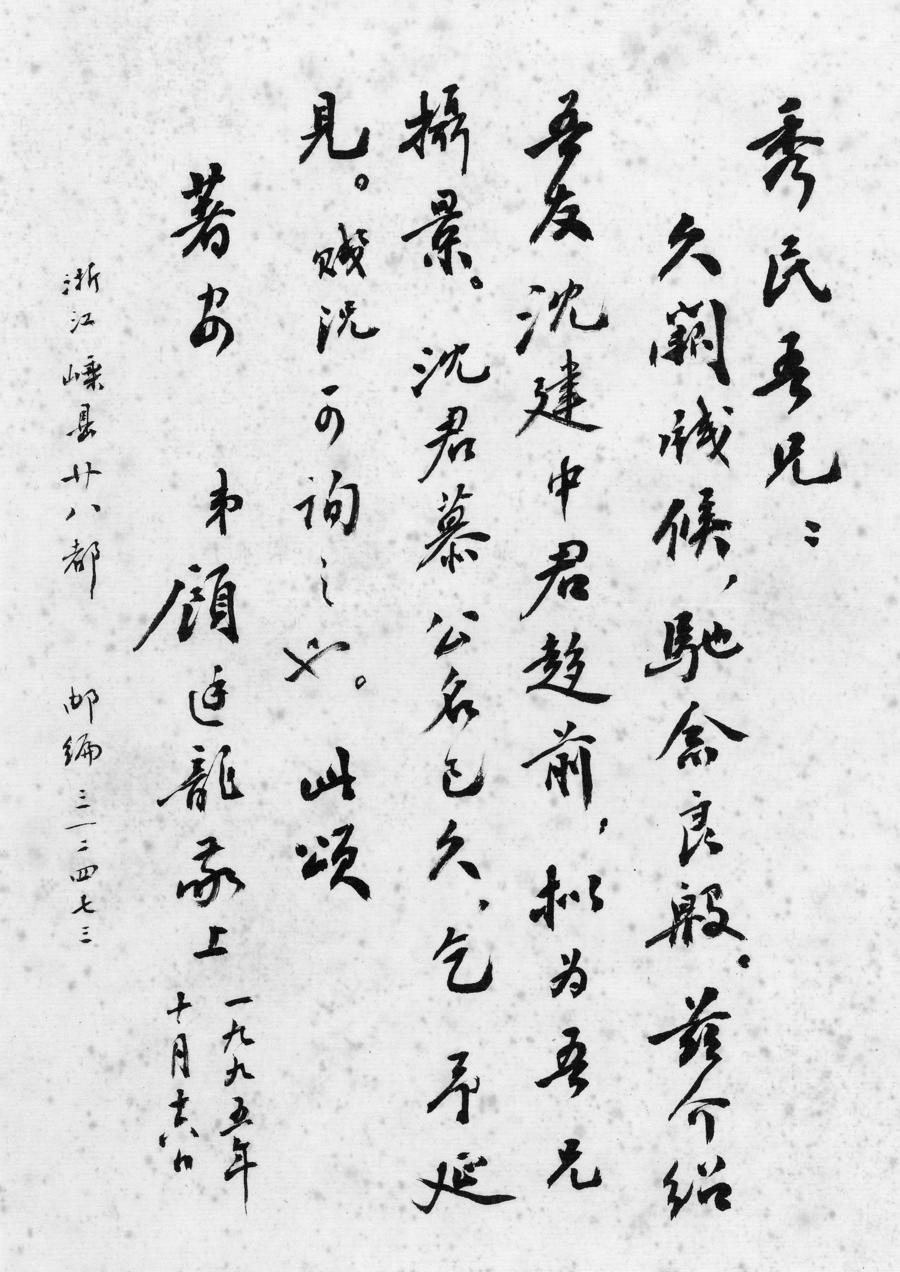 秀民吾兄：
久阙牋候，馳念良殷。兹介绍
吾友沈建中君趋前，拟为吾兄
摄景。沈君慕公名已久，乞 予延
見。贱况可询之也。此颂
著安
弟顾廷龍敬上
一九九五年
十月十八日
浙江嵊县廿八都 邮编三一二四七三